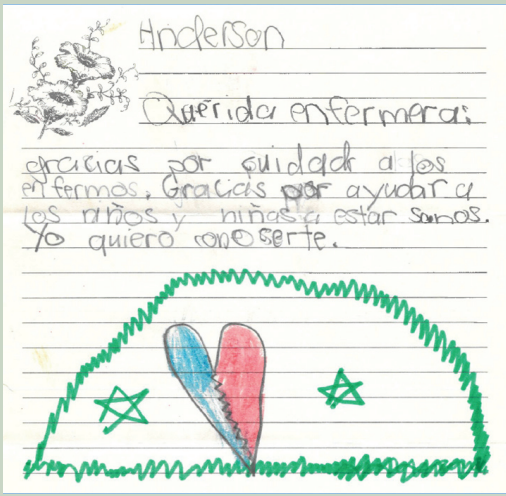 Anderson
Querida enfermera:
gracias por cuidadr a los
enfermos. Gracias por ayudar a
los niños y niñas a estar sanos.
Yo quiero conoserte.